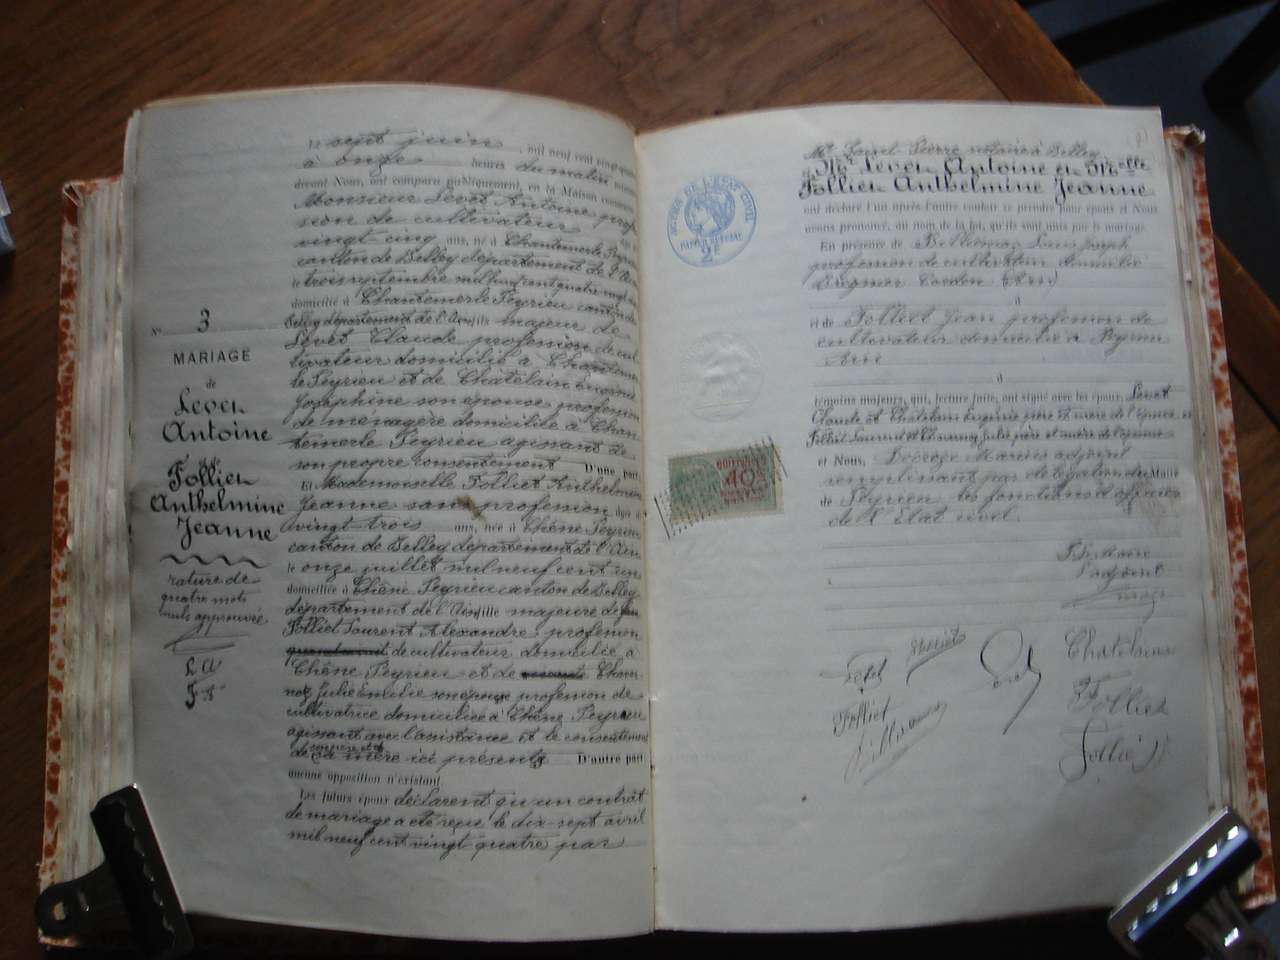 N° 3
MARIAGE
de
Levet
Antoine
et de
Folliet
Anthelmine
Jeanne
rature de
quatre mots
nuls approuvée
L A
F A
Le sept juin, mil neuf cent vingt quatre
à onze heures du matin
devant Nous, ont comparu publiquement, en la Maison commune
Monsieur Levet Antoine profes
sion de cultivateur âgé de
vingt-cinq ans, né à Chantemerle Peyrieu
canton de Belley département de l'Ain
le trois septembre mil huit cent quatre vingt dix
domicilié à Chantemerle Peyrieu canton de
Belley département de l'Ain fils majeur de
Levet Claude profession de cul
tivateur domicilié à Chantemer
le Peyrieu et de Châtelain Eugénie
Joséphine son épouse profession
de ménagère domiciliée à Chan
temerle Peyrieu agissant de
son propre consentement D'une part
Et Mademoiselle Folliet Anthelmine
Jeanne sans profession âgée de
vingt trois ans, née à Chêne Peyrieu
canton de Belley département de l'Ain
le onze juillet mil neuf cent un
domiciliée à Chêne Peyrieu canton de Belley
département de l'Ain fille majeure de
Folliet Laurent Alexandre profession
de cultivateur domicilié à
Chêne Peyrieu et de Charve
noz Julie Emilie son épouse profession de
cultivatrice domiciliée à Chêne Peyrieu
agissant avec l'assistance et le consentement
de ses père et mère ici présents D'autre part
aucune opposition n'existant
Les futurs époux déclarent qu'un contrat
de mariage a été reçu le dix-sept avril
mil neuf cent vingt quatre par
ACTES DE L'ETAT CIVIL
PAPIER SPECIAL
2F
40c
Me Pierre notaire à Belley
Mr Levet Antoine et Melle
Folliet Anthelmine Jeanne
ont déclaré l'un après l'autre vouloir se prendre pour époux et Nous
avons prononcé, au nom de la loi, qu'ils sont unis par le mariage.
En présence de Louis Joseph
profession de cultivateur domicilié
(Ain)
et de Folliet Jean profession de
cultivateur domicilié à Peyrieu
Ain
témoins majeurs, qui, lecture faite, ont signé avec les époux, Levet
Claude et Châtelain Eugénie père et mère de l'époux et
Folliet Laurent et Charvenoz Julie père et mère de l'épouse
et Nous, Marius adjoint
remplissant par délégation du Maire
de Peyrieu les fonctions d'officier
de l'Etat civil.
P. le maire
l'adjoint
Levet
Folliet
Châtelain
Folliet
Folliet